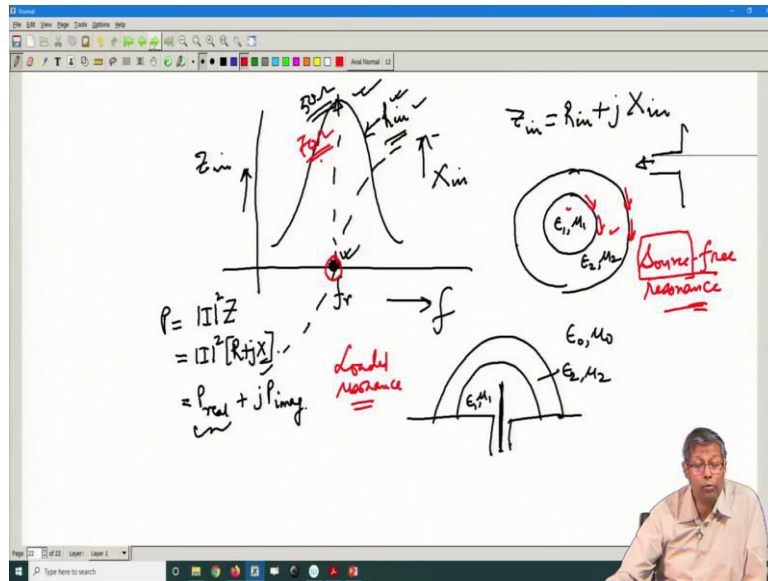 Xournal
File Edit View Page Tools Options Help
Arial Normal 12
50Ω
70Ω
Rin
Zin
Xin
fr
f
Zin = Rin + j Xin
ε1, μ1
ε2, μ2
Source-free
resonance
P = |I|²Z
= |I|² [R+jX]
= Preal + jPimag.
Loaded
resonance
ε0, μ0
ε2, μ2
ε1, μ1
Page 22 of 22 Layer: Layer 1
Type here to search